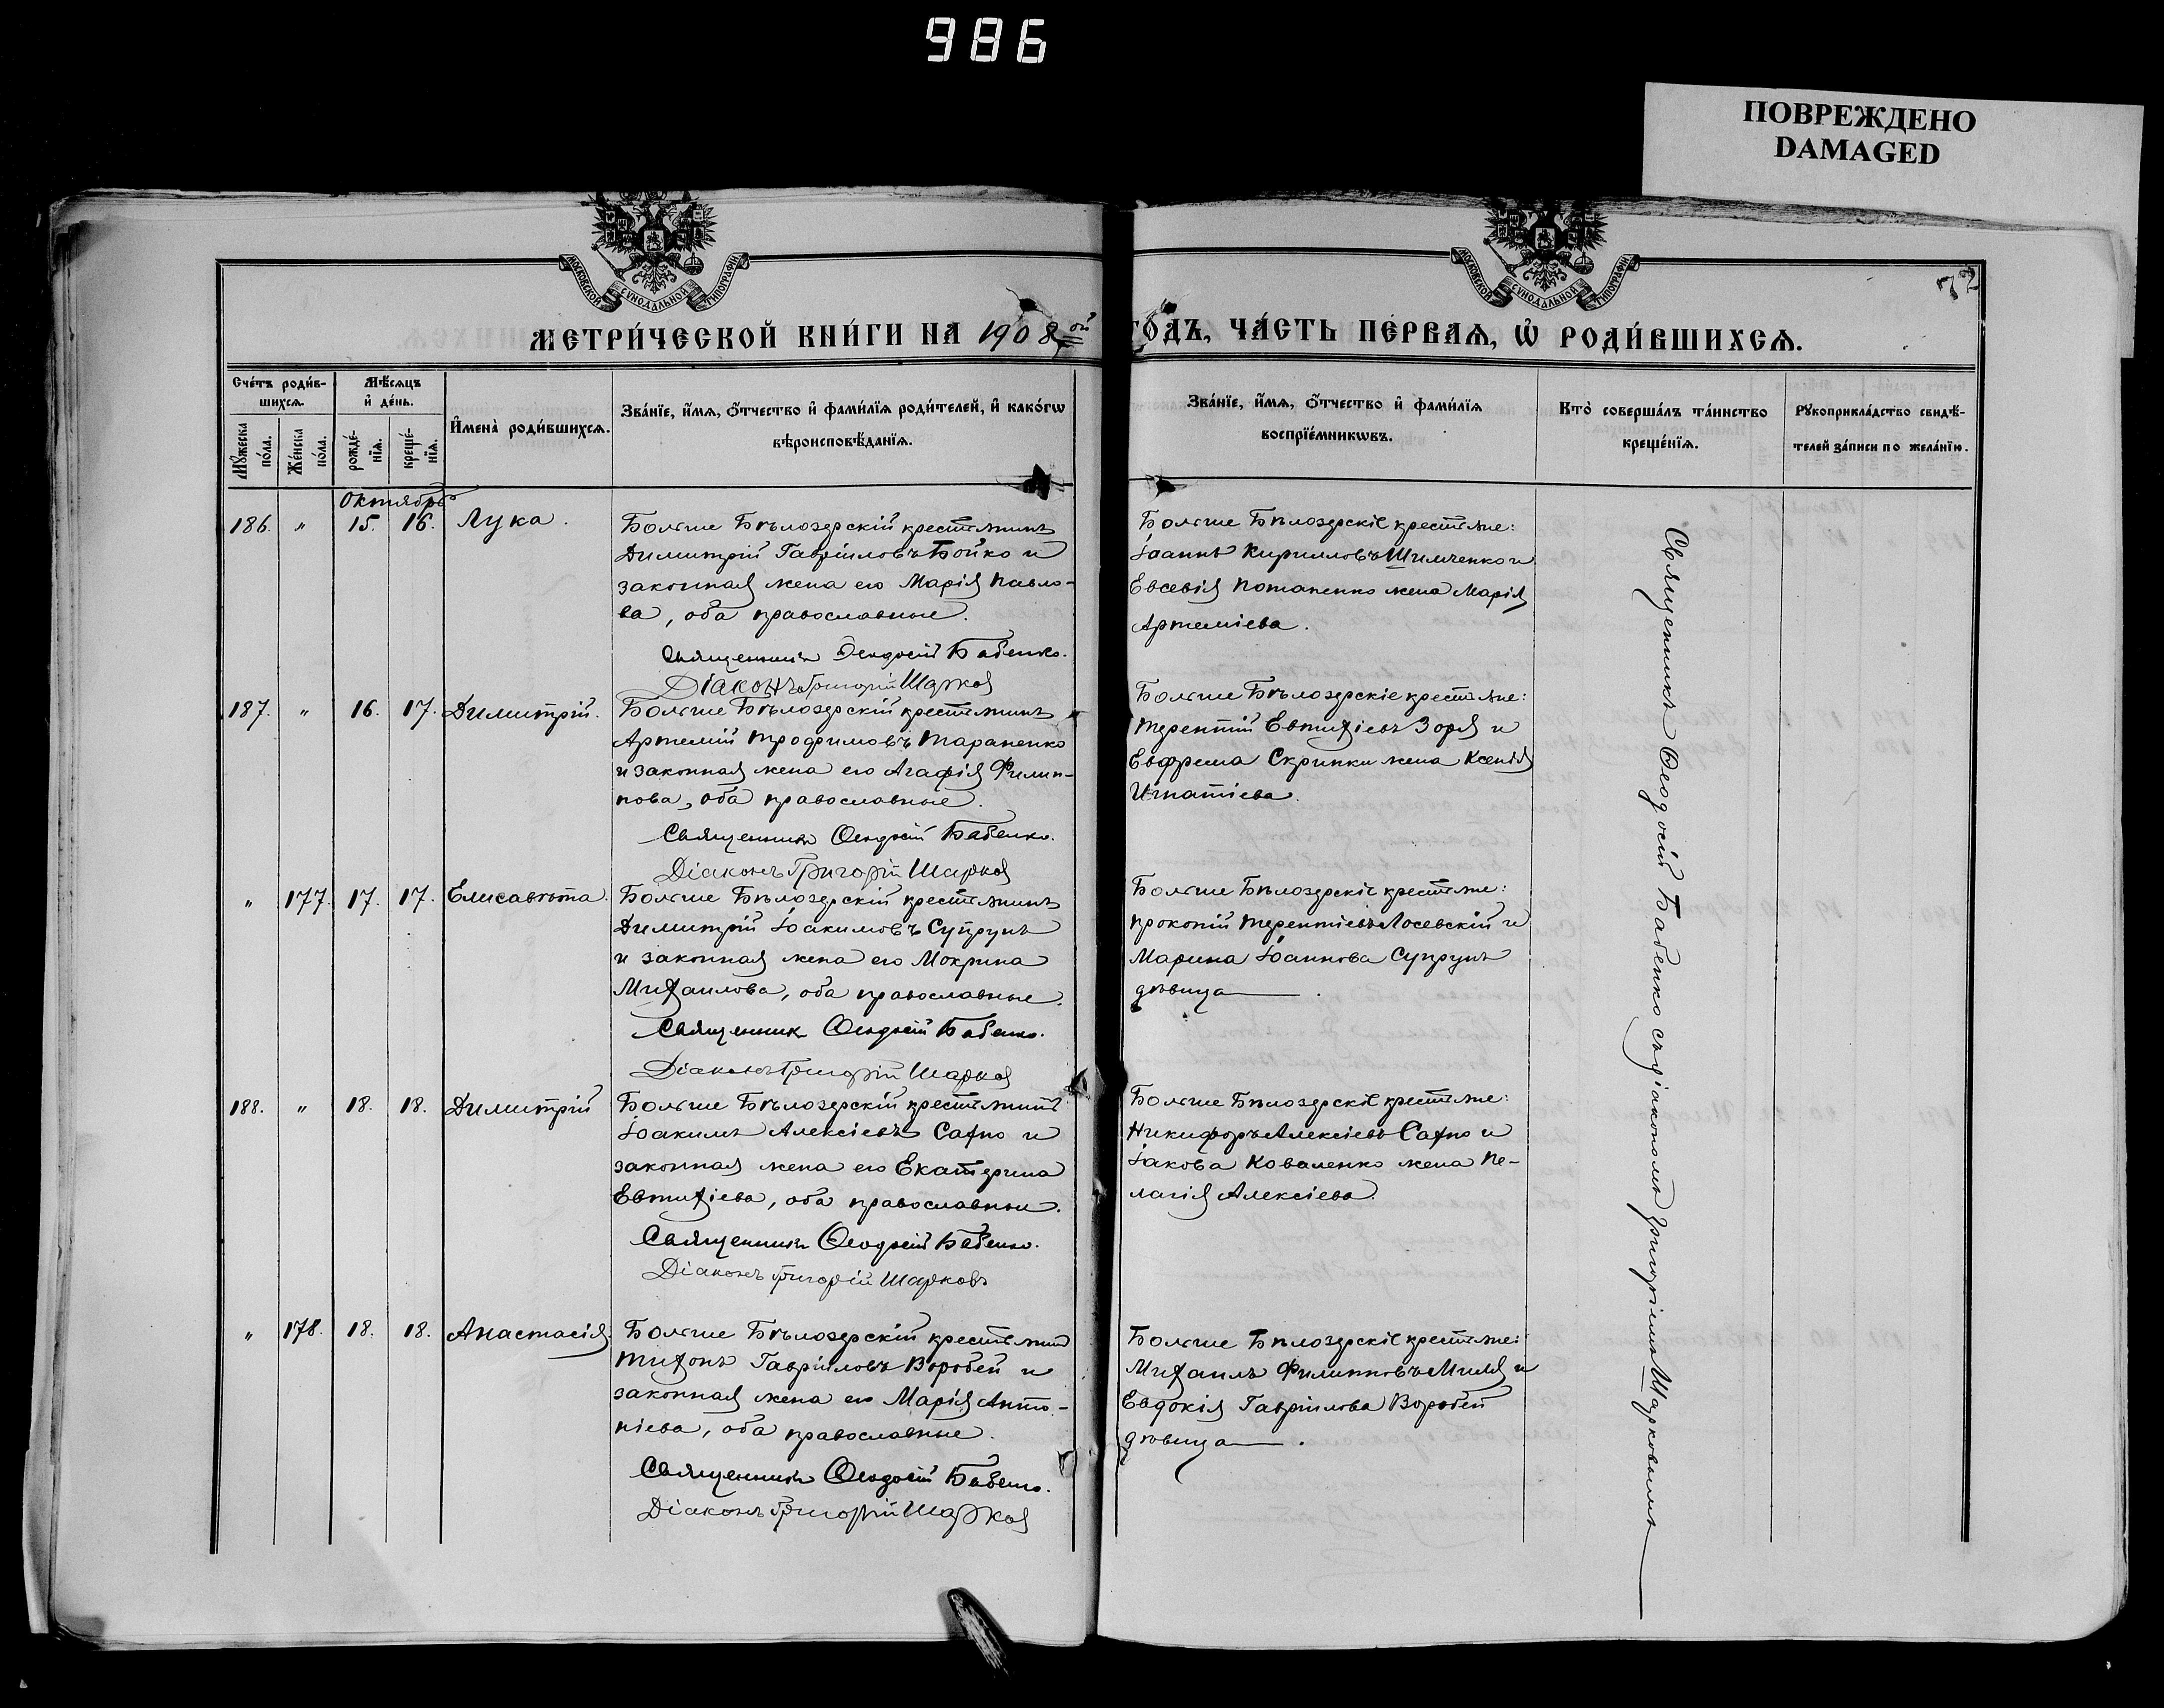 986
ПОВРЕЖДЕНО
DAMAGED
МОСКОВСКОЙ СѴНОДАЛЬНОЙ ТИПОГРАФІИ
МОСКОВСКОЙ СѴНОДАЛЬНОЙ ТИПОГРАФІИ
72
МЕТРИ́ЧЕСКОЙ КНИ́ГИ НА 1908ой ГО́ДЪ, ЧА́СТЬ ПЕ́РВАѦ, Ѡ҆ РОДИ́ВШИХСѦ.
Сче́тъ роди́в-
шихсѧ.
Мꙋ́жеска по́ла.
Же́нска по́ла.
Мѣ́сѧцъ
и҆ де́нь.
рожде́-
нїѧ.
креще́-
нїѧ.
И҆мена̀ роди́вшихсѧ.
Зва́нїе, и҆́мѧ, ѻ҆́тчество и҆ фами́лїѧ роди́телей, и҆ како́гѡ
вѣроисповѣ́данїѧ.
Зва́нїе, и҆́мѧ, ѻ҆́тчество и҆ фами́лїѧ
воспрїе́мникѡвъ.
Кто̀ соверша́лъ та́инство
креще́нїѧ.
Рꙋкоприкла́дство свидѣ́-
телей за́писи по жела́нїю.
Октябрь
186. " 15. 16. Лука.
Больше Бѣлозерскій крестьянинъ
Димитрій Гавріиловъ Бойко и
законная жена его Марія Павло-
ва, оба православные.
Священникъ Ѳеодосій Бабенко.
Діаконъ Григорій Шарков
Больше Бѣлозерскіе крестьяне:
Іоаннъ Кирилловъ Шимченко и
Евсевія Потапенко жена Марія
Артеміева.
187. " 16. 17. Димитрій.
Больше Бѣлозерскій крестьянинъ
Артемій Трофимовъ Тараненко
и законная жена его Агафія Филип-
пова, оба православные.
Священникъ Ѳеодосій Бабенко.
Діаконъ Григорій Шарков
Больше Бѣлозерскіе крестьяне:
Терентій Евтихіевъ Зоря и
Евфрема Скрипки жена Ксенія
Игнатіева.
" 177. 17. 17. Елисавѣта.
Больше Бѣлозерскій крестьянинъ
Димитрій Іоакимовъ Супрунъ
и законная жена его Мокрина
Михаилова, оба православные.
Священник Ѳеодосій Бабенко.
Діаконъ Григорій Шарков
Больше Бѣлозерскіе крестьяне:
Прокопій Терентіевъ Лосевскій и
Марина Іоаннова Супрунъ
дѣвица.
188. " 18. 18. Димитрій
Больше Бѣлозерскій крестьянинъ
Іоакимъ Алексіевъ Сахно и
законная жена его Екатерина
Евтихіева, оба православные.
Священникъ Ѳеодосій Бабенко.
Діаконъ Григорій Шарковъ
Больше Бѣлозерскіе крестьяне:
Никифоръ Алексіевъ Сахно и
Іакова Коваленко жена Пе-
лагія Алексіева.
" 178. 18. 18. Анастасія.
Больше Бѣлозерскій крестьянин
Тихонъ Гавріиловъ Воробей и
законная жена его Марія Анто-
ніева, оба православные.
Священникъ Ѳеодосій Бабенко.
Діаконъ Григорій Шарков
Больше Бѣлозерскіе крестьяне:
Михаилъ Филипповъ Миля и
Евдокія Гавріилова Воробей
дѣвица.
Священникъ Ѳеодосій Бабенко съ діакономъ Григоріемъ Шарковымъ